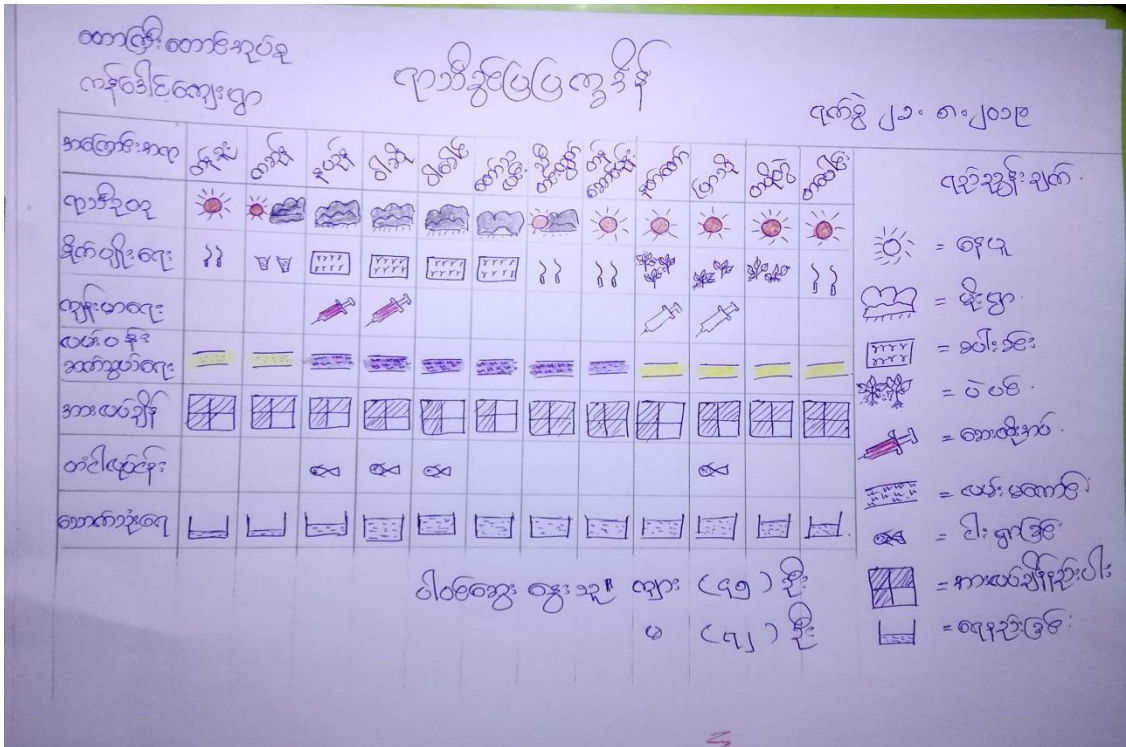 တောကြီးတောင်အုပ်စု
ကန်ဒေါင့်ကျေးရွာ
ရာသီခွင်ပြပြက္ခဒိန်
ရက်စွဲ ၂၁.၈.၂၀၁၉
အကြောင်းအရာ တန်ခူး ကဆုန် နယုန် ဝါဆို ဝါခေါင် တော်သလင်း သီတင်းကျွတ် တန်ဆောင်မုန်း နတ်တော် ပြာသို တပို့တွဲ တပေါင်း
ရာသီဥတု
စိုက်ပျိုးရေး
ကျန်းမာရေး
လမ်းပန်း
ဆက်သွယ်ရေး
အားလပ်ချိန်
တံငါလုပ်ငန်း
သောက်သုံးရေ
ရည်ညွှန်းချက်
= နေပူ
= မိုးရွာ
= စပါးခင်း
= ပဲပင်
= ဆေးထိုးအပ်
= လမ်းမကောင်း
= ငါးရှာခြင်း
= အားလပ်ချိန်နည်းပါး
= ရေနည်းခြင်း
ပါဝင်ဆွေးနွေးသူ ကျား (၄၅) ဦး
မ (၄၂) ဦး